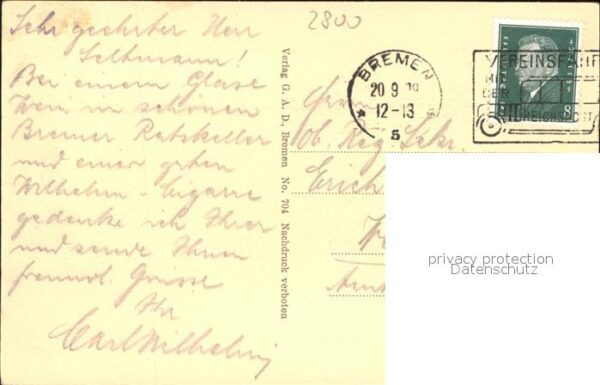 Sehr geehrter Herr
Seltmann!
Bei einem Glase
Wein im schönen
Bremer Ratskeller
und einer guten
Wilhelm-Cigarre
gedenke ich Ihrer
und sende Ihnen
freundl. Grüsse
Ihr
Carl Wilhelmj
2800
Verlag G. A. D., Bremen No. 704 Nachdruck verboten
BREMEN
20 9
12-13
5
VEREINSFAHR
MI
DER
REICHSPOST
8
Herrn
Ob. Reg. Sekr.
Erich
privacy protection
Datenschutz